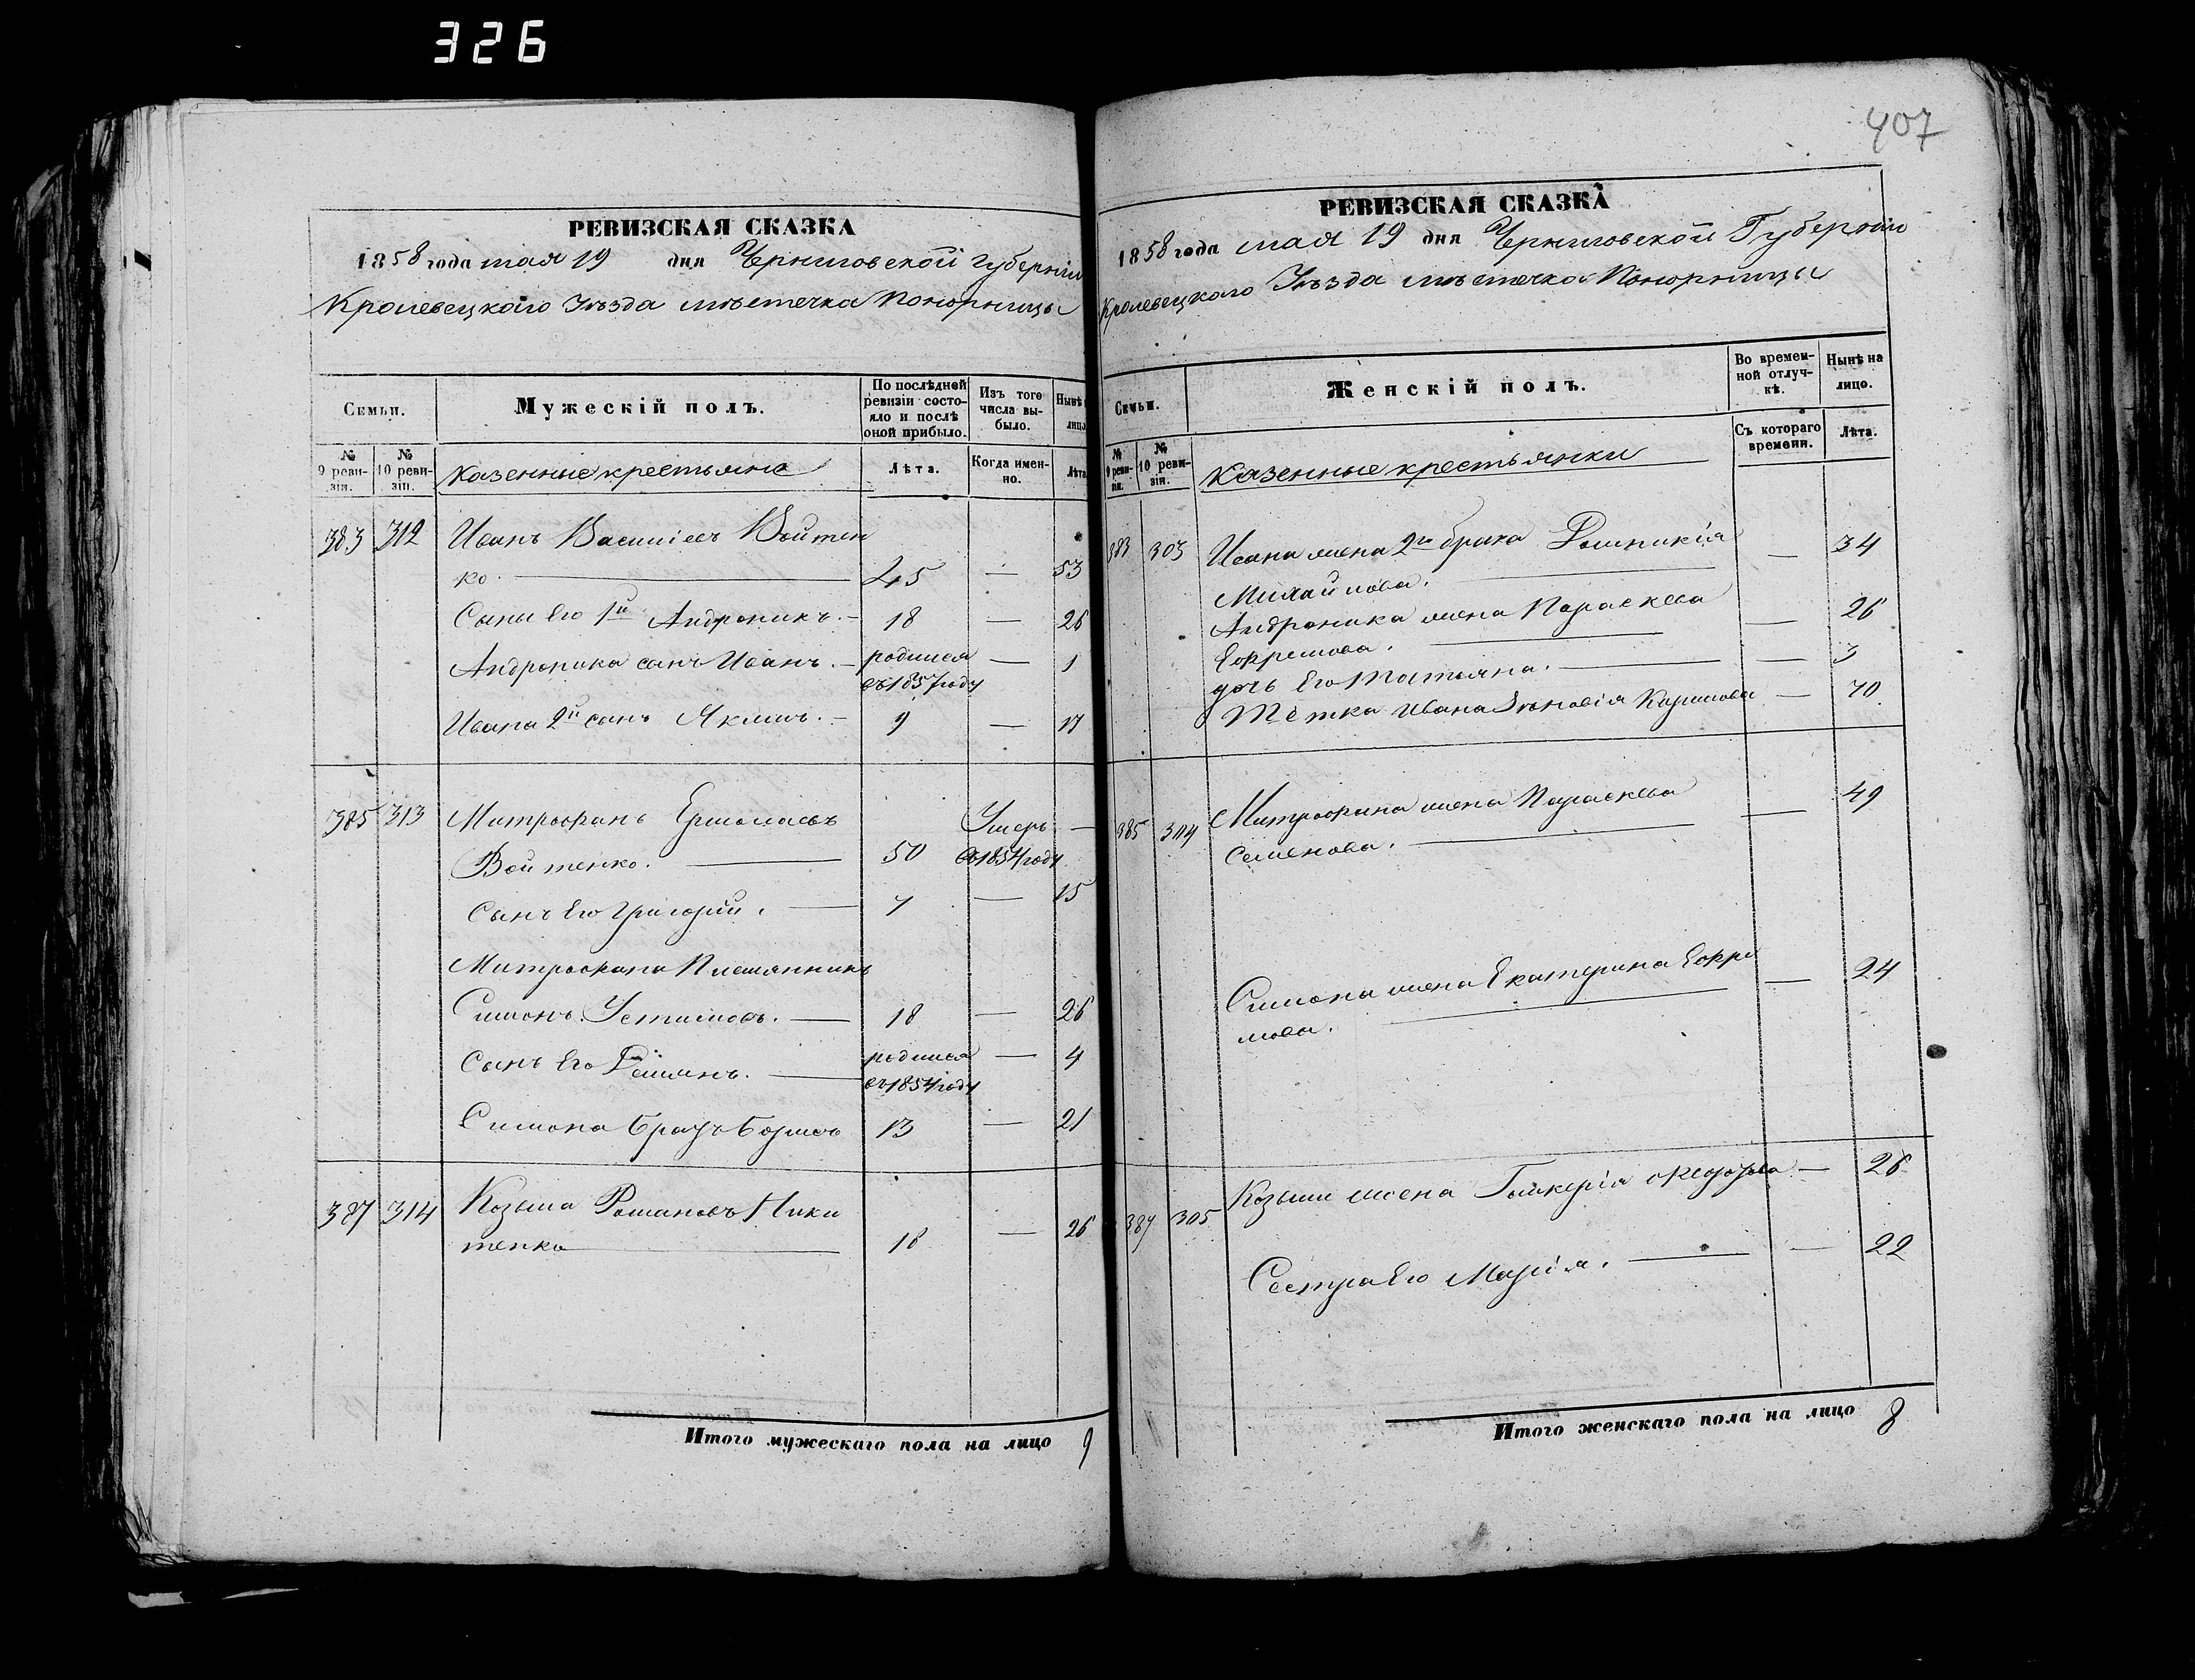 326
407
РЕВИЗСКАЯ СКАЗКА
1858 года мая 19 дня Черниговской Губерніи
Кролевецкаго Уѣзда мѣстечка Понорницы
Семьи.
Мужескій полъ.
По послѣдней ревизіи состояло и послѣ оной прибыло.
Изъ того числа выбыло.
Нынѣ
лицо
№ 9 ревизіи.
№ 10 ревизіи.
казенные крестьяне
Лѣта.
Когда именно.
Лѣта
383 312 Иванъ Василіевъ Войтен
ко. 45 — 53
Сыны Его 1й Андроникъ. 18 — 26
Андроника сынъ Иванъ. родился — 1
въ 1857 году
Ивана 2й сынъ Якимъ. 9 — 17
385 313 Митрофанъ Ермолаевъ Умеръ —
Войтенко. 50 въ 1854 году
Сынъ Его Григорій. 7 — 15
Митрофана Племянникъ
Симонъ Устимовъ. 18 — 26
Сынъ Его родился — 4
въ 1854 году
Симона братъ Борисъ 13 — 21
387 314 Козьма Романовъ Ники
тенко 18 — 26
Итого мужескаго пола на лицо 9
РЕВИЗСКАЯ СКАЗКА
1858 года мая 19 дня Черниговской Губерніи
Кролевецкаго Уѣзда мѣстечка Понорницы
Семьи.
Женскій полъ.
Во временной отлучкѣ.
Нынѣ на лицо.
№ 9 ревизіи.
№ 10 ревизіи.
казенные крестьянки
Съ котораго времени.
Лѣта.
383 303 Ивана жена 2го брака Домникія — 34
Михайлова.
Андроника жена Параскева — 26
Ефремова.
дочь Его Татьяна. — 3
Тётка Ивана Зѣновія Карпова — 70
385 304 Митрофана жена Параскева — 49
Семенова.
Симона жена Екатерина Ефре — 24
мова.
387 305 Козьмы жена Гликерія Федорова — 26
Сестра Его Марія. — 22
Итого женскаго пола на лицо 8